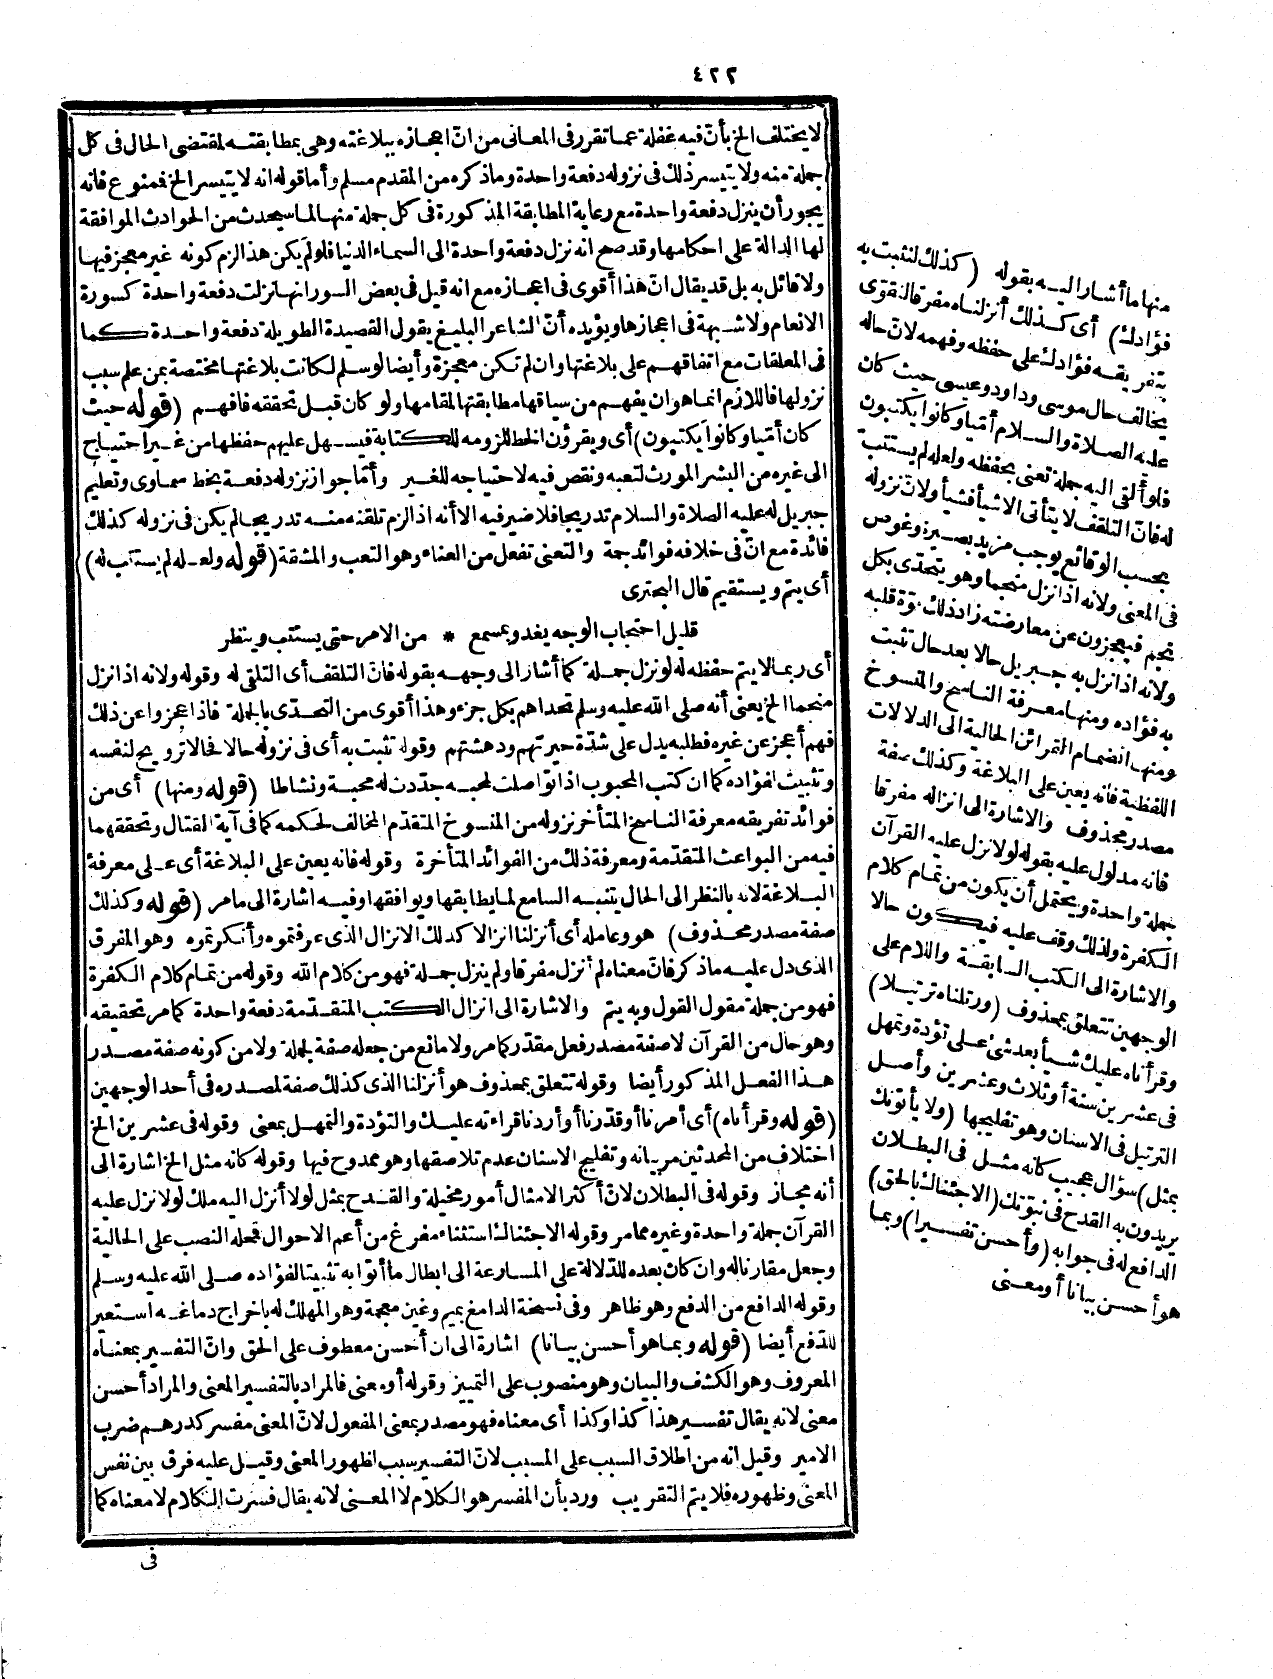 ٤٢٢
لا يختلف الخ بأنّ فيه غفلة عما تقرر فى المعانى من انّ اعجازه ببلاغته وهى بمطابقته لمقتضى الحال فى كل
جملة منه ولا يتيسر ذلك فى نزوله دفعة واحدة وما ذكره من المقدم مسلم وأما قوله انه لا يتيسر الخ فممنوع فانه
يجوز أن ينزل دفعة واحدة مع رعاية المطابقة المذكورة فى كل جملة منها لما سيحدث من الحوادث الموافقة
لها الدالة على احكامها وقد صح انه نزل دفعة واحدة الى السماء الدنيا فلو لم يكن هذا لزم كونه غير معجز فيها
ولا قائل به بل قد يقال انّ هذا أقوى فى اعجازه مع انه قيل فى بعض السور انها نزلت دفعة واحدة كسورة
الانعام ولا شبهة فى اعجازها ويؤيده أنّ الشاعر البليغ يقول القصيدة الطويلة دفعة واحدة كما
فى المعلقات مع اتفاقهم على بلاغتها وان لم تكن معجزة وأيضا لو سلم لكانت بلاغتها مختصة بمن علم سبب
نزولها فاللازم انما هو ان يفهم من سياقها مطابقتها لمقامها ولو كان قبل تحققه فافهم (قوله حيث
كان أمّيا وكانوا يكتبون) أى ويقرؤن الخط للزومه للكتابة فيسهل عليهم حفظها من غير احتياج
الى غيره من البشر المورث لتعبه ونقص فيه لاحتياجه للغير وأمّا جواز نزوله دفعة بخط سماوى وتعليم
جبريل له عليه الصلاة والسلام تدريجا فلا ضير فيه الا أنه اذا لزم تلقنه منه تدريجا لم يكن فى نزوله كذلك
فائدة مع انّ فى خلافه فوائد جمة والتعنى تفعل من العناء وهو التعب والمشقة (قوله ولعله لم يستتب له)
أى يتم ويستقيم قال البحترى
قليل احتجاب الوجه يغدو بمسمع * من الامر حتى يستتب وينظر
أى ربما لا يتم حفظه له لو نزل جملة كما أشار الى وجهه بقوله فانّ التلقف أى التلقى له وقوله ولانه اذا نزل
منجما الخ يعنى أنه صلى الله عليه وسلم تحداهم بكل جزء وهذا أقوى من التحدّى بالجملة فاذا عجزوا عن ذلك
فهم أعجز عن غيره فطلبه يدل على شدّة حيرتهم ودهشتهم وقوله تثبت به أى فى نزوله حالا فحالا ترويح لنفسه
وتثبيت لفؤاده كما ان كتب المحبوب اذا تواصلت لمحبه جدّدت له محبة ونشاطا (قوله ومنها) أى من
فوائد تفريقه معرفة الناسخ المتأخر نزوله من المنسوخ المتقدّم المخالف لحكمه كما فى آية القتال وتحققهما
فيه من البواعث المتقدّمة ومعرفة ذلك من الفوائد المتأخرة وقوله فانه يعين على البلاغة أى على معرفة
البلاغة لانه بالنظر الى الحال يتنبه السامع لما يطابقها ويوافقها وفيه اشارة الى ما مر (قوله وكذلك
صفة مصدر محذوف) هو وعامله أى أنزلنا انزالا كذلك الانزال الذى عرفتموه وأنكرتموه وهو المفرق
الذى دل عليه ما ذكر فانّ معناه لم أنزل مفرقا ولم ينزل جملة فهو من كلام الله وقوله من تمام كلام الكفرة
فهو من جملة مقول القول وبه يتم والاشارة الى انزال الكتب المتقدّمة دفعة واحدة كما مر تحقيقه
وهو حال من القرآن لا صفة مصدر فعل مقدّر كما مر ولا مانع من جعله صفة لجملة ولا من كونه صفة مصدر
هذا الفعل المذكور أيضا وقوله تتعلق بمحذوف هو أنزلنا الذى كذلك صفة لمصدره فى أحد الوجهين
(قوله وقرأناه) أى أمرنا أو قدّرنا أو أردنا قراءته عليك والتؤدة والتمهل بمعنى وقوله فى عشرين الخ
اختلاف من المحدثين مر بيانه وتفليج الاسنان عدم تلاصقها وهو ممدوح فيها وقوله كانه مثل الخ اشارة الى
أنه مجاز وقوله فى البطلان لانّ أكثر الامثال أمور مخيلة والقدح بمثل لولا أنزل اليه ملك لولا نزل عليه
القرآن جملة واحدة وغيره مما مر وقوله الا جئنالك استثناء مفرغ من أعم الاحوال فمحله النصب على الحالية
وجعل مقارنا له وان كان بعده للدّلالة على المسارعة الى ابطال ما أتوا به تثبيتا لفؤاده صلى الله عليه وسلم
وقوله الدافع من الدفع وهو ظاهر وفى نسخة الدامغ بميم وغين معجمة وهو المهلك له باخراج دماغه استعير
للدّفع أيضا (قوله وبما هو أحسن بيانا) اشارة الى ان أحسن معطوف على الحق وانّ التفسير بمعناه
المعروف وهو الكشف والبيان وهو منصوب على التمييز وقوله أو معنى فالمراد بالتفسير المعنى والمراد أحسن
معنى لانه يقال تفسير هذا كذا وكذا أى معناه فهو مصدر بمعنى المفعول لانّ المعنى مفسر كدرهم ضرب
الامير وقيل انه من اطلاق السبب على المسبب لانّ التفسير سبب لظهور المعنى وقيل عليه فرق بين نفس
المعنى وظهوره فلا يتم التقريب وردّ بأن المفسر هو الكلام لا المعنى لانه يقال فسرت الكلام لا معناه كما
فى
منها ما أشار اليه بقوله (كذلك لنثبت به
فؤادك) أى كذلك أنزلناه مفرقا لنقوّى
بتفريقه فؤادك على حفظه وفهمه لانّ حاله
يخالف حال موسى وداود وعيسى حيث كان
عليه الصلاة والسلام أمّيا وكانوا يكتبون
فلو ألقى اليه جملة تعنى بحفظه ولعله لم يستتب
له فانّ التلقف لا يتأتى الا شيأ فشيأ ولانّ نزوله
بحسب الوقائع يوجب مزيد بصيرة وغوص
فى المعنى ولانه اذا نزل منجما وهو يتحدّى بكل
نجم فيعجزون عن معارضته زاد ذلك قوّة قلبه
ولانه اذا نزل به جبريل حالا بعد حال تثبت
به فؤاده ومنها معرفة الناسخ والمنسوخ
ومنها انضمام القرائن الحالية الى الدلالات
اللفظية فانه يعين على البلاغة وكذلك صفة
مصدر محذوف والاشارة الى انزاله مفرقا
فانه مدلول عليه بقوله لولا نزل عليه القرآن
جملة واحدة ويحتمل أن يكون من تمام كلام
الكفرة ولذلك وقف عليه فيكون حالا
والاشارة الى الكتب السابقة واللام على
الوجهين تتعلق بمحذوف (ورتلناه ترتيلا)
وقرأناه عليك شيأ بعد شئ على تؤدة وتمهل
فى عشرين سنة أو ثلاث وعشرين وأصل
الترتيل فى الاسنان وهو تفليجها (ولا يأتونك
بمثل) سؤال عجيب كانه مثل فى البطلان
يريدون به القدح فى نبوّتك (الا جئنالك بالحق)
الدافع له فى جوابه (وأحسن تفسيرا) وبما
هو أحسن بيانا أو معنى